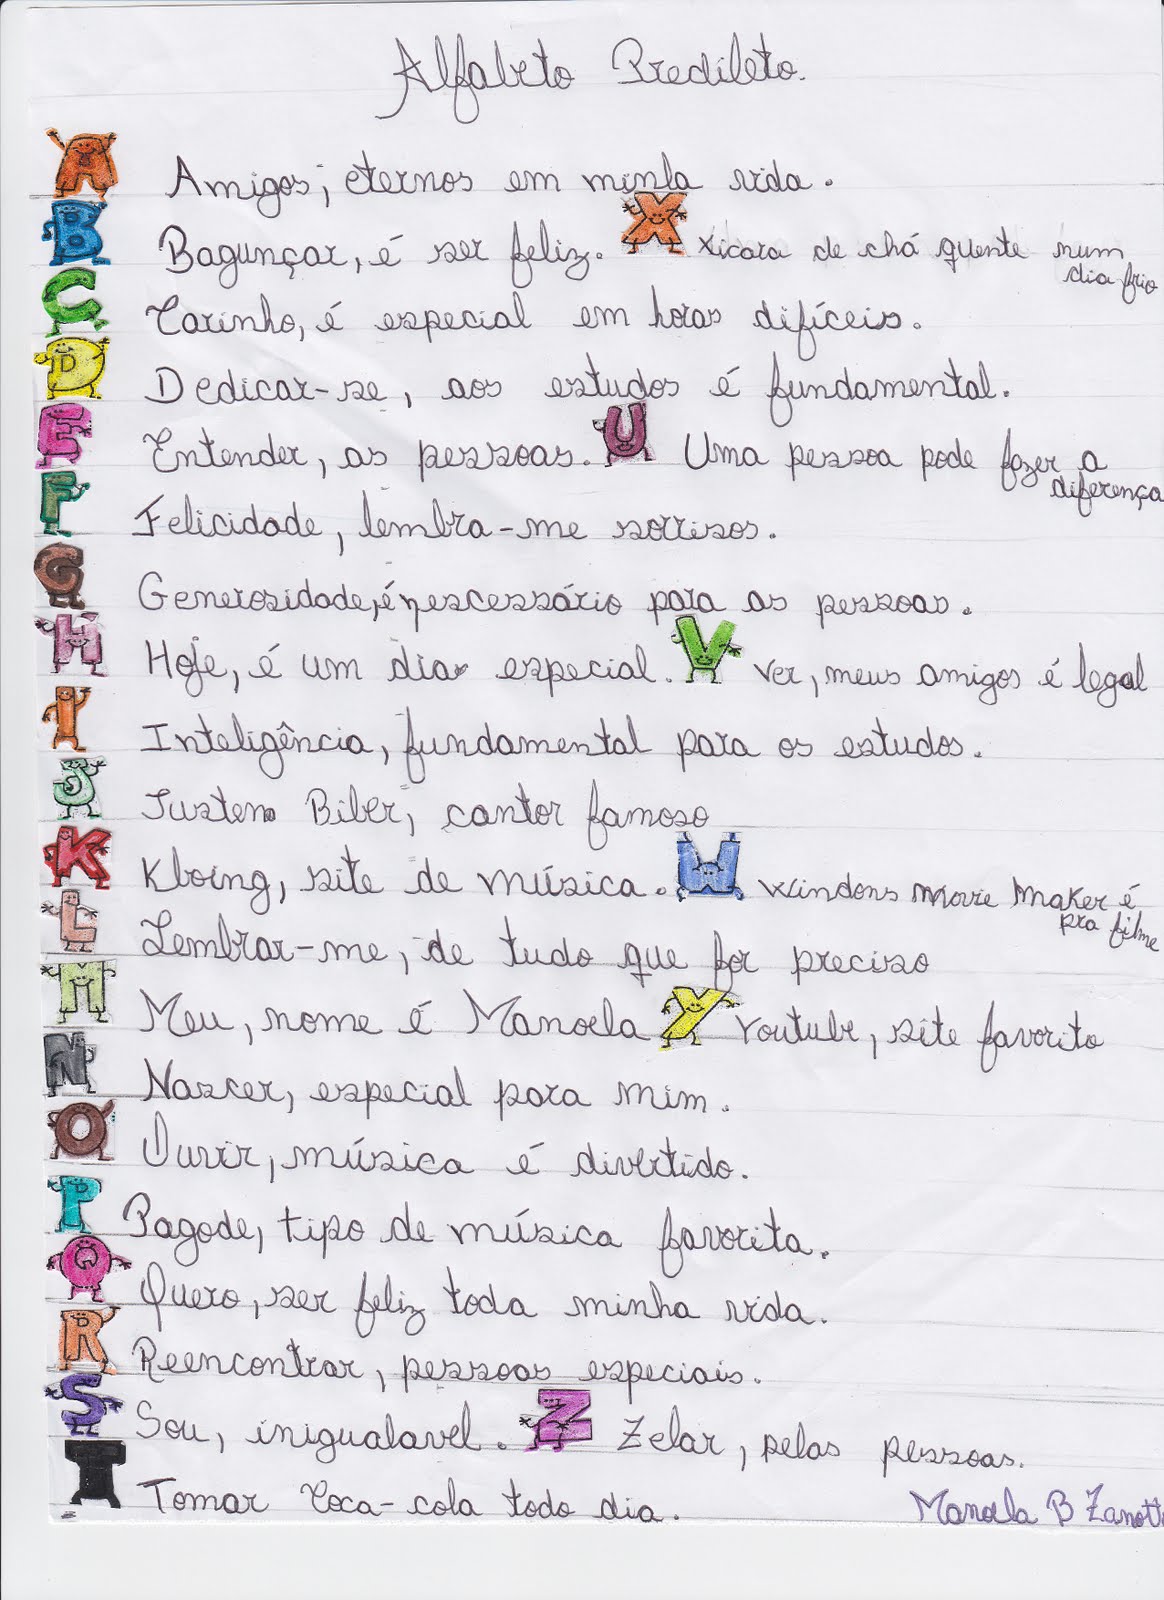 Alfabeto Predileto.
A Amigos, eternos em minha vida.
B Bagunçar, é ser feliz. X xícara de chá quente num
dia frio
C Carinho, é especial em horas difíceis.
D Dedicar-se, aos estudos é fundamental.
E Entender, as pessoas. U Uma pessoa pode fazer a
diferença
F Felicidade, lembra-me sorrisos.
G Generosidade, é nescessário para as pessoas.
H Hoje, é um dia especial. V Ver, meus amigos é legal
I Inteligência, fundamental para os estudos.
J Justen Biber, cantor famoso
K Kboing, site de música. W Windons Movie Maker é
pra filme
L Lembrar-me, de tudo que for preciso
M Meu, nome é Manoela Y Youtube, site favorito
N Nascer, especial para mim.
O Ouvir, música é divertido.
P Pagode, tipo de música favorita.
Q Quero, ser feliz toda minha vida.
R Reencontrar, pessoas especiais.
S Sou, inigualavel. Z Zelar, pelas pessoas.
T Tomar Coca-cola todo dia. Manoela B Zanott